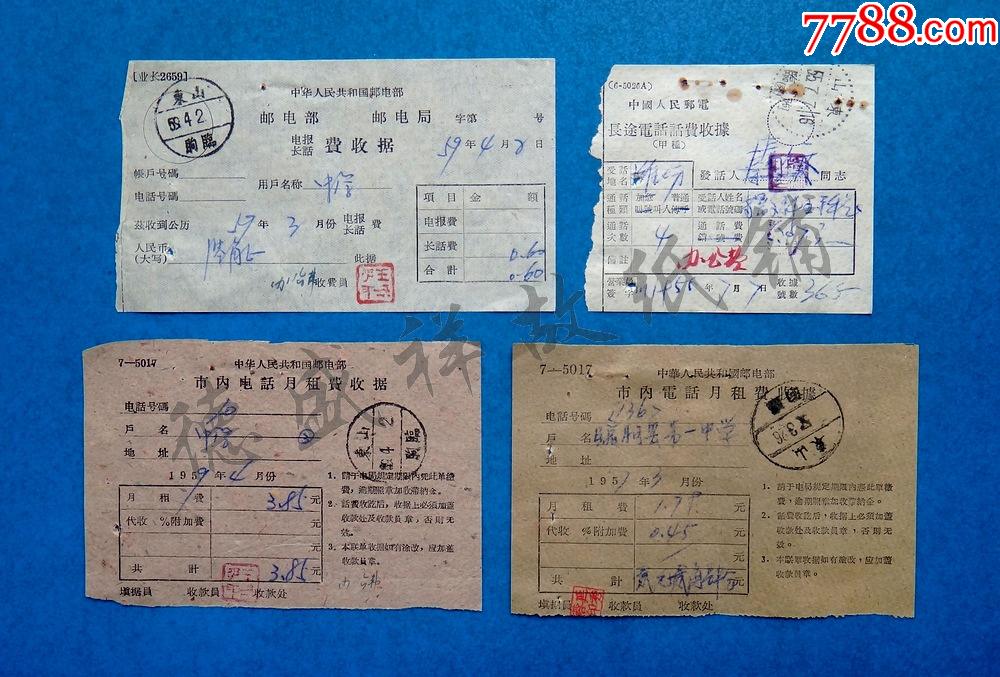 7788.com
[业长2659]
中华人民共和国邮电部
邮电部 邮电局 字第 号
电报
长话 費收据 59年4月2日
山東
59.4.2
臨朐
帳戶号碼
电話号碼
用戶名称 中学
茲收到公历 59年3月份 电报
长話 費
人民币
(大写) 此据
办公费 收費員
項目 金 額
电报費
长話費 0.60
合計 0.60
(6-5026A)
中國人民郵電
長途電話話費收據
(甲種)
受話
地名
發話人 同志
通話
種類 加急 普通
叫號 叫人 傳呼
受話人姓名
或電話號碼
通話
次數 4
通話費
銷號費
備註 办公費
營業員
簽字 1955年7月7日 收據
號數 365
山東
55.7.7.16
7—5017
中华人民共和国邮电部
市内电話月租費收据
电話号碼
戶名 中学
地址
1959年4月份
月租費 3.85元
代收 %附加費 元
元
共計 3.85元
填据員 收款員 收款处
山東
臨朐
1. 請于电局規定期限内凭此單繳
費，逾期照章加收滯納金。
2. 話費收訖后，收据上必須加蓋
收款处及收款員章，否則无
效。
3. 本联單收据如有涂改，应加蓋
收款員章。
7—5017
中華人民共和國邮电部
市內電話月租費收據
电話号碼 136
戶名 臨朐县第一中学
地址
1957年3月份
月租費 1.79元
代收 %附加費 0.45元
元
共計
填据員 收款員 收款处
山東
1. 請于电局規定期限內憑此單繳
費，逾期照章加收滯納金。
2. 話費收訖后，收据上必須加蓋
收款处及收款員章，否則无
效。
3. 本联單收据如有涂改，应加蓋
收款員章。
德盛祥故紙鋪